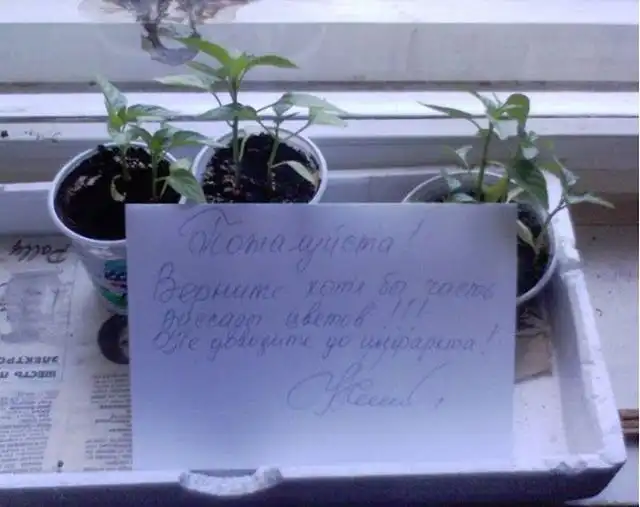 Пожалуйста!
Верните хотя бы часть
рассады цветов!!!
Не доводите до инфаркта!
Polly
ШЕСТЬ П
ЭЛЕКТРО